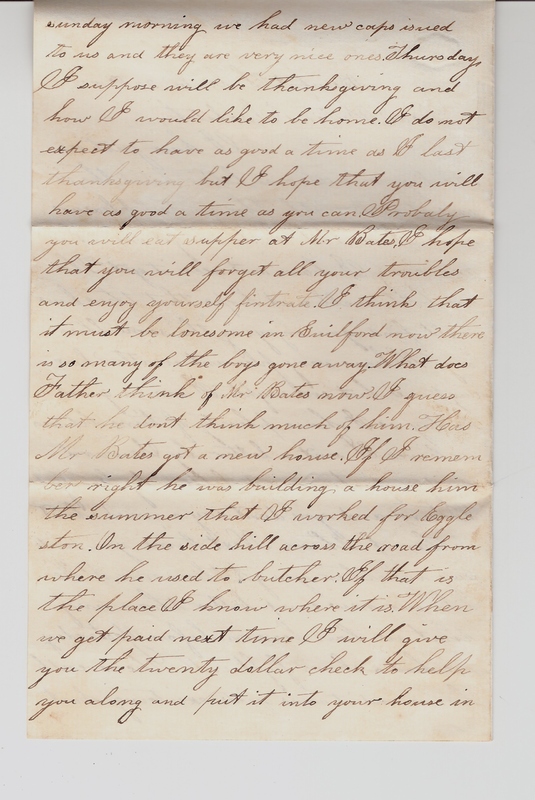 sunday morning we had new caps issued
to us and they are very nice ones. Thursday,
I suppose will be thanksgiving and
how I would like to be home. I do not
expect to have as good a time as I last
thanksgiving but I hope that you will
have as good a time as you can. Probaly
you will eat supper at Mr Bates. I hope
that you will forget all your troubles
and enjoy yourself firstrate. I think that
it must be lonesome in Guilford now there
is so many of the boys gone away. What does
Father think of Mr Bates now. I guess
that he dont think much of him. Has
Mr Bates got a new house. If I remem
ber right he was building a house him
the summer that I worked for Eggle
ston. On the side hill across the road from
where he used to butcher. If that is
the place I know where it is. When
we get paid next time I will give
you the twenty dollar check to help
you along and put it into your house in